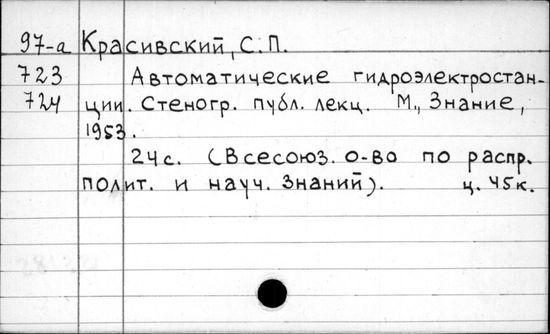 97-а Красивский, С.П.
723 Автоматические гидроэлектростан-
724 ции. Стеногр. публ. лекц. М., Знание,
1953.
24с. (Всесоюз. о-во по распр.
полит. и науч. знаний). ц. 45к.